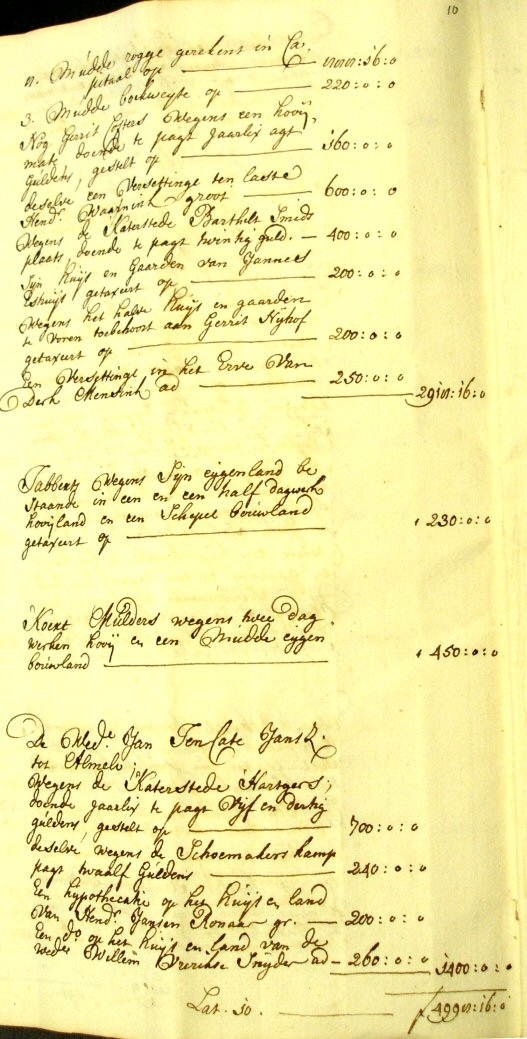 n. Mudde rogge gerekent in Ca,
pitaal op
3. Mudde boekweyte op 220:0:0
Nog Gerrit Costers Wegens een hooij,
mate, doende te pagt Jaarlix agt
guldens, gestelt op 160:0:0
deselve een Versettinge ten laste
Hendr. Waarnink groot 600:0:0
Wegens de Katerstede Barthelt Smids
plaats, doende te pagt twintig guld. 400:0:0
Sijn Huijs en Gaarden van Jannes
Eshuijs, getaxeert op 200:0:0
Wegens het halve Huijs en gaarden
te voren toebehoort aan Gerrit Nijhof
getaxeert op 200:0:0
Een Versettinge in het Erve Van
Derk Mensink ad 250:0:0
Jabbertz Wegens Sijn eygenland be
staande in een en een half dagwerk
hooijland en een Schepel bouwland
getaxeert op 230:0:0
Koert Mulders wegens twee dag,
werken hooij en een Mudde eygen
bouwland 450:0:0
De Wede. Jan Ten Cate Jansz.
tot Almelo
Wegens de Katerstede Hartgers,
doende jaarlix te pagt Vijf en dertig
guldens, gestelt op 700:0:0
deselve wegens de Schoemakers kamp
pagt twaalf Guldens 240:0:0
Een hypothecatie op het Huijs en land
Van Hendr. Jansen Ronaar gr. 200:0:0
Een do. op het Huijs en land van de
wede. Willem Snijder ad 260:0:0 1400:0:0
Lat. 10.